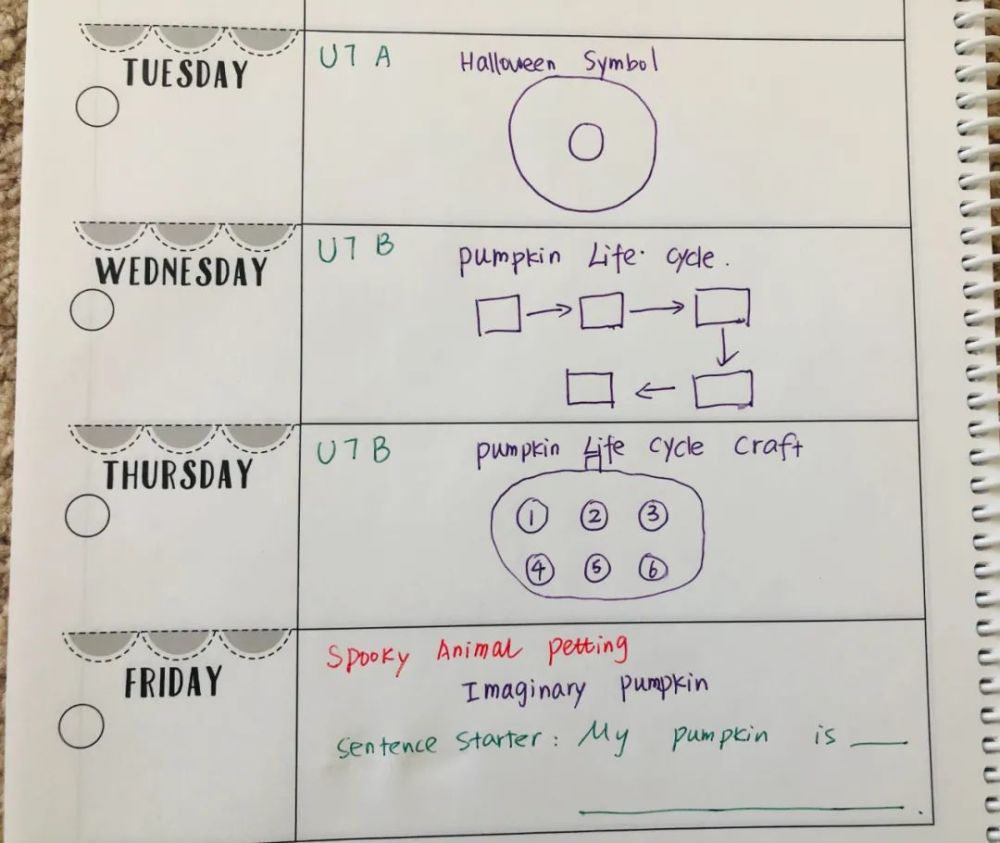 TUESDAY
U7 A
Halloween Symbol
WEDNESDAY
U7 B
pumpkin Life cycle.
THURSDAY
U7 B
pumpkin Life cycle craft
1 2 3
4 5 6
FRIDAY
Spooky Animal petting
Imaginary pumpkin
Sentence Starter: My pumpkin is ___
___.